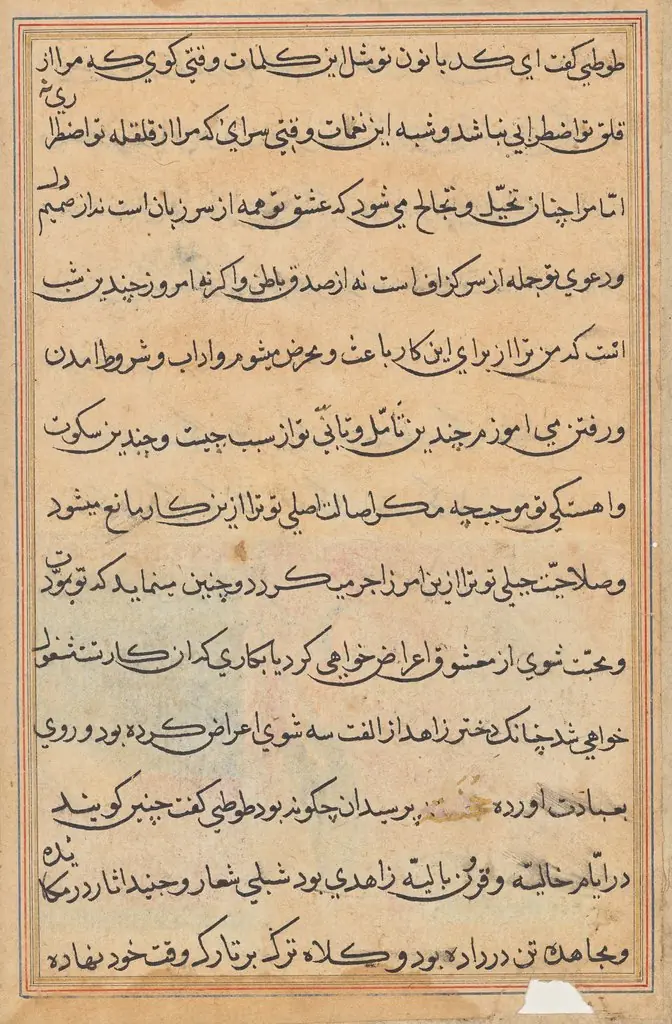 طوطي کفت اي کد بانون تو مثل اين کلمات وقتي کوي که مرا از
قلق تو اضطرابي نباشد و شبه اين نغمات وقتي سراي که مرا از قلقله تو اضطراري نه
امّا مرا چنان تخيّل و تخالج مي شود که عشق تو همه از سر زبان است نه از صميم دل
و دعوي تو جمله از سر کزاف است نه از صدق باطن و اکرنه امروز چندين شب
است که من ترا از براي اين کار باعث و محرض ميشوم و اداب و شروط امدن
و رفتن مي اموزم چندين تأمّل و تأنّي تو از سبب چيست و چندين سکوت
و اهستکي تو موجب چه مکر اصالت اصلي تو ترا ازين کار مانع ميشود
و صلاحيّت جبلي تو ترا ازين امر زاجر ميکردد و چنين مينمايد که تو بمودّت
و محبّت شوي از معشوق اعراض خواهي کرد يا بکاري کدان کار تست مشغول
خواهي شد چنانک دختر زاهد از الفت سه شوي اعراض کرده بود و روي
بعبادت اورده پرسيد ان چکونه بود طوطي کفت چنين کويند
در ايّام خاليه و قرون باليه زاهدي بود شبلي شعار و جنيد اثار در مکايده
و مجاهده تن در داده بود و کلاه ترک بر تارک وقت خود نهاده